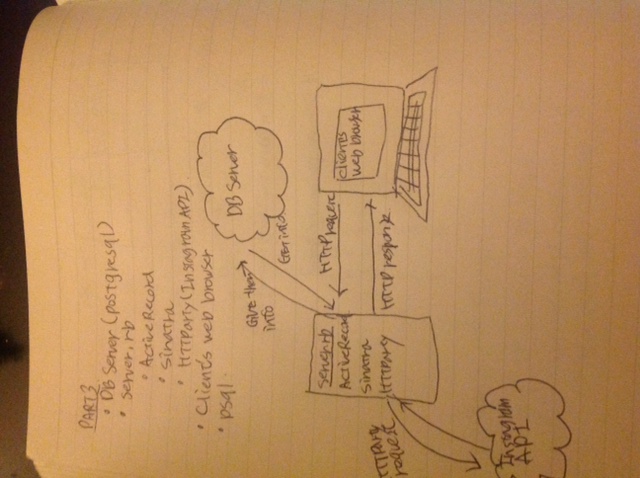 PART 3
• DB Server (postgresql)
• server.rb
• ActiveRecord
• Sinatra
• HTTParty (Instagram API)
• Client's web browser
• psql
Give them
info
DB Server
Get info
server.rb
ActiveRecord
Sinatra
HTTParty
HTTP request
client's
web browser
HTTP response
HTTParty
request
Instagram
API